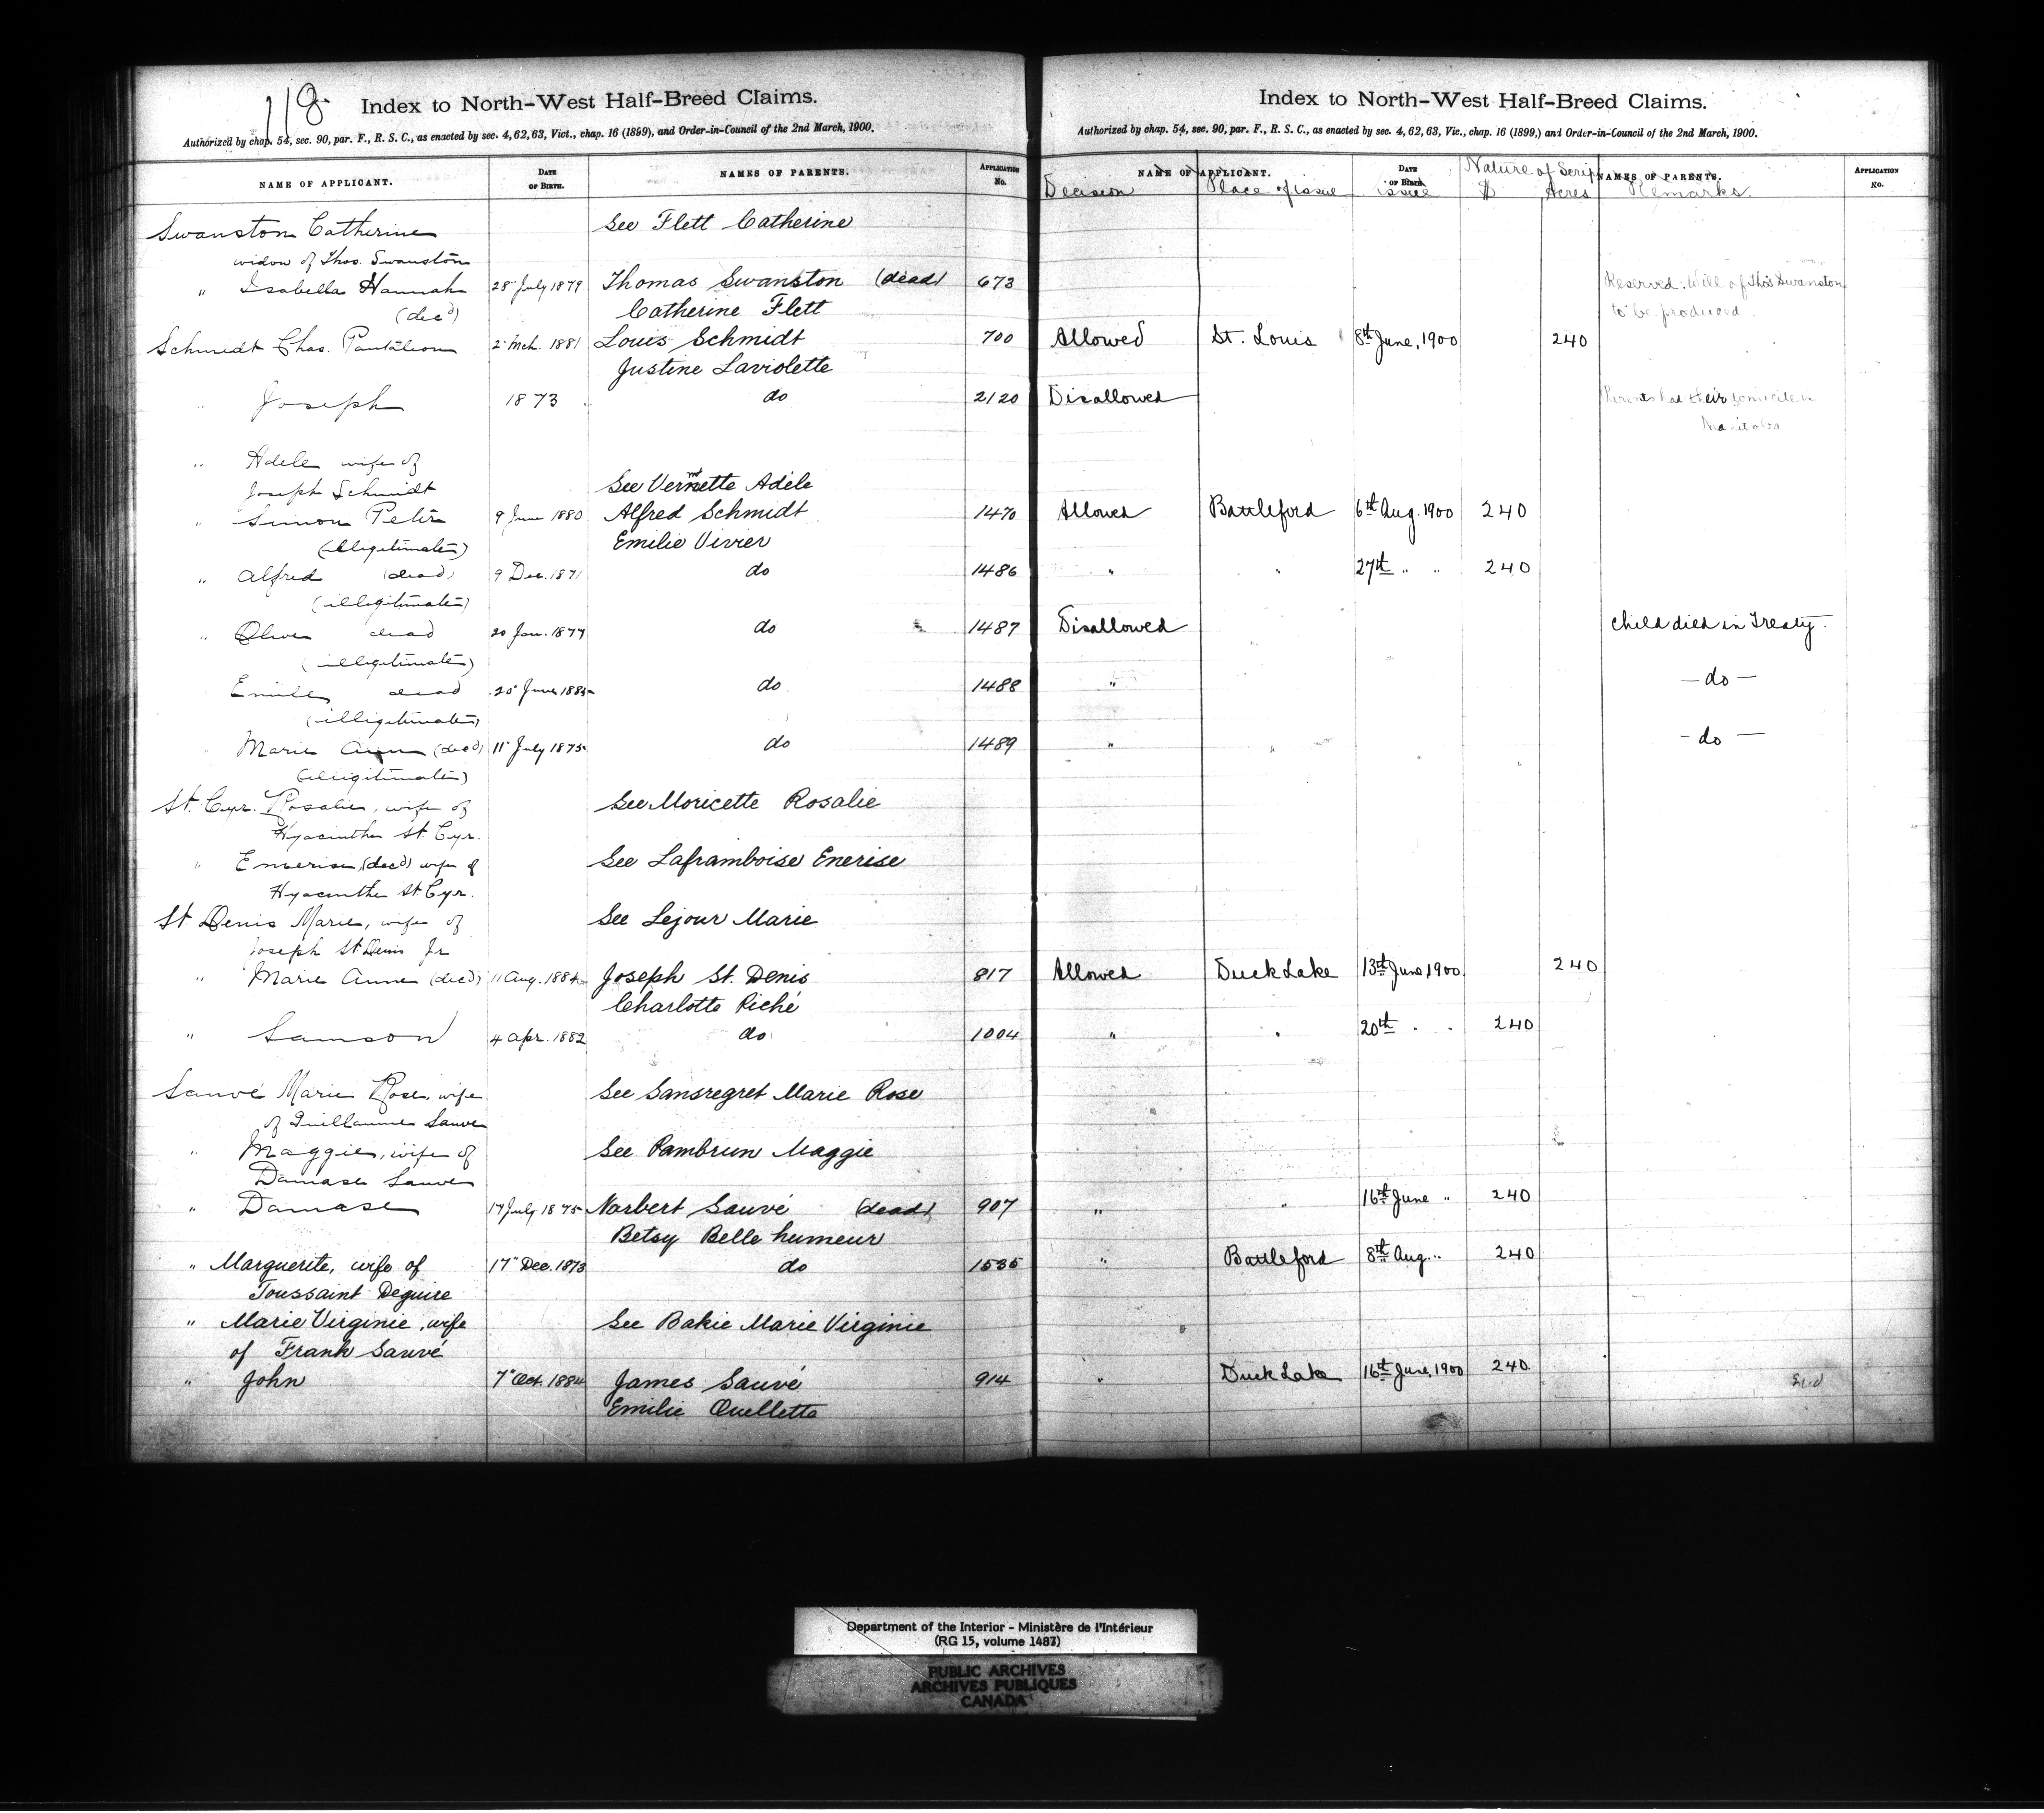 118.
Index to North-West Half-Breed Claims.
Authorized by chap. 54, sec. 90, par. F., R. S. C., as enacted by sec. 4, 62, 63, Vict., chap. 16 (1899), and Order-in-Council of the 2nd March, 1900.
NAME OF APPLICANT. DATE OF BIRTH. NAMES OF PARENTS. APPLICATION No.
Swanston Catherine See Flett Catherine
widow of Thos. Swanston
" Isabella Hannah 28" July 1879 Thomas Swanston (dead) 673
(dec'd) Catherine Flett
Schmidt Chas. Pantaleon 2" Mch. 1881 Louis Schmidt 700
Justine Laviolette
" Joseph 1873 do 2120
" Adele wife of
Joseph Schmidt See Vermette Adéle
" Simon Peter 9 June 1880 Alfred Schmidt 1470
(illigitimate) Emilie Vivier
" Alfred (dead) 9 Dec. 1871 do 1486
(illigitimate)
" Oliver dead 20 Jan. 1877 do 1487
(illigitimate)
Emile dead 20" June 1885 do 1488
(illigitimate)
" Marie Ann (dead) 11" July 1875 do 1489
(illigitimate)
St. Cyr. Rosalie, wife of See Moricette Rosalie
Hyacinthe St. Cyr.
" Enerise (dec'd) wife of See Laframboise Enerise
Hyacinthe St Cyr.
St Denis Marie, wife of See Lejour Marie
Joseph St Denis Jr
" Marie Anne (dec'd) 11 Aug. 1884 Joseph St. Denis 817
Charlotte Riché
" Samson 4 Apr. 1882 do 1004
Sauvé Marie Rose, wife See Sansregret Marie Rose
of Guillaume Sauve
" Maggie, wife of See Pambrun Maggie
Damase Sauve
" Damase 17 July 1875 Norbert Sauvé (dead) 907
Betsy Belle humeur
" Marguerite, wife of 17" Dec. 1873 do 1535
Toussaint Deguire
" Marie Virginie, wife See Bakie Marie Virginie
of Frank Sauvé
" John 7" Oct. 1884 James Sauvé 914
Emilie Ouellette
Index to North-West Half-Breed Claims.
Authorized by chap. 54, sec. 90, par. F., R. S. C., as enacted by sec. 4, 62, 63, Vic., chap. 16 (1899,) and Order-in-Council of the 2nd March, 1900.
NAME OF APPLICANT. DATE OF BIRTH Nature of Scrip NAMES OF PARENTS. APPLICATION No.
Decision Place of issue issue $ Acres Remarks
Reserved: Will of Thos Swanston
to be produced
Allowed St. Louis 8th June, 1900 240
Disallowed Parents had their domicile in
Manitoba
Allowed Battleford 6th Aug. 1900 240
" " 27th " " 240
Disallowed Child died in Treaty.
" - do -
" " - do -
Allowed Duck Lake 13th June, 1900 240
" " 20th " " 240
" " 16th June " 240
" Battleford 8th Aug. " 240
" Duck Lake 16th June, 1900 240
Department of the Interior - Ministère de l'Intérieur
(RG 15, volume 1487)
PUBLIC ARCHIVES
ARCHIVES PUBLIQUES
CANADA